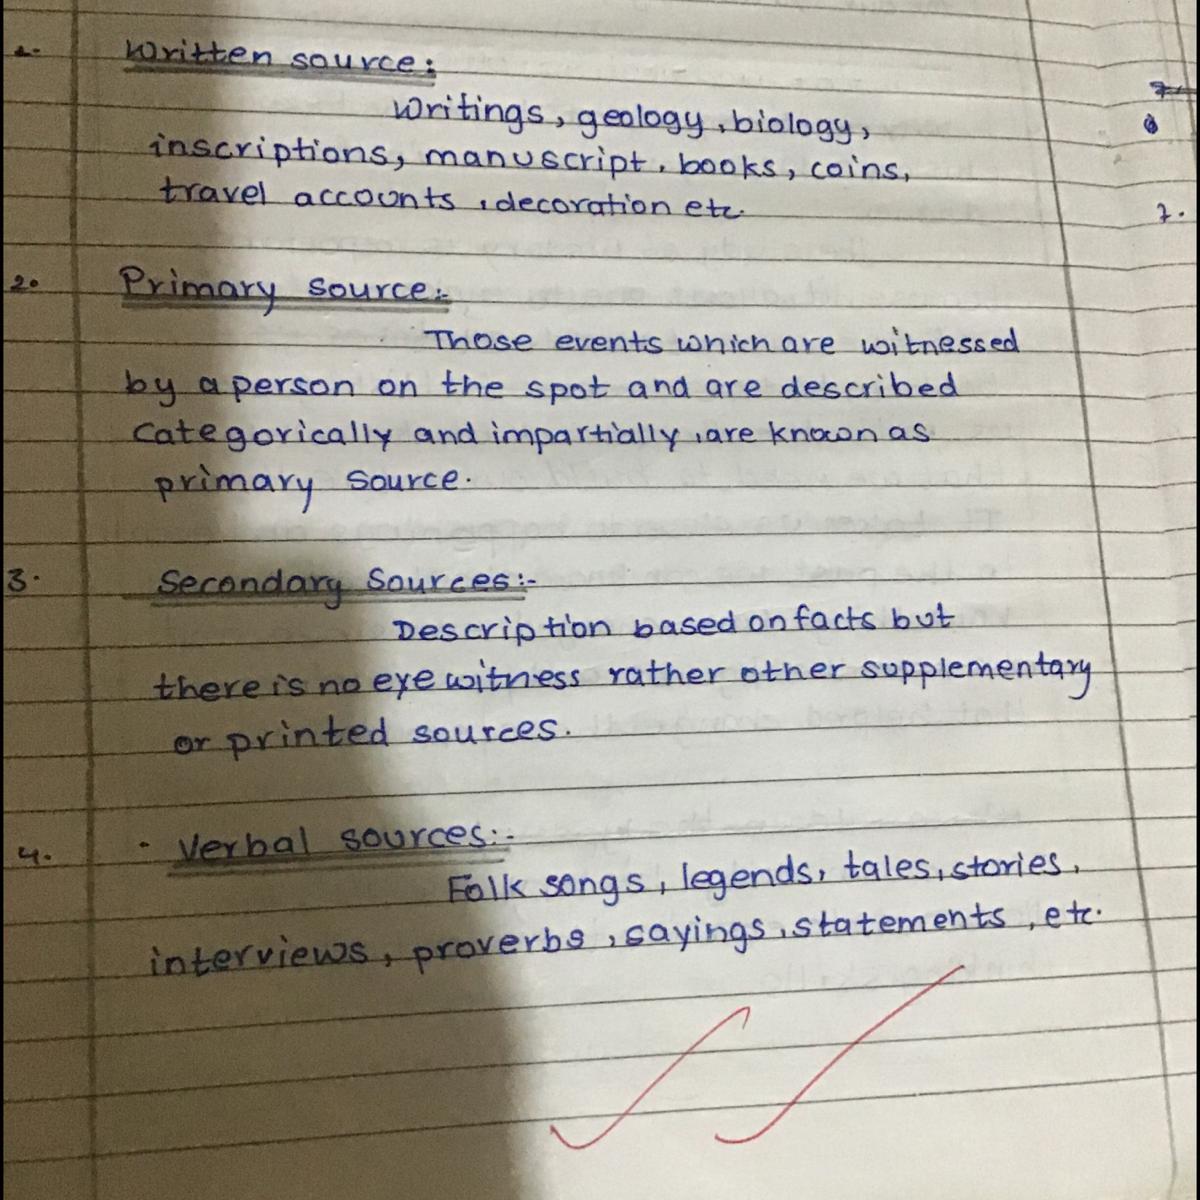 Written source:
Writings, geology, biology,
inscriptions, manuscript, books, coins,
travel accounts, decoration etc.
2. Primary source:-
Those events which are witnessed
by a person on the spot and are described
categorically and impartially, are known as
primary source.
3. Secondary Sources:-
Description based on facts but
there is no eye witness rather other supplementary
or printed sources.
4. Verbal sources:-
Folk songs, legends, tales, stories,
interviews, proverbs, sayings, statements, etc.
7
7.